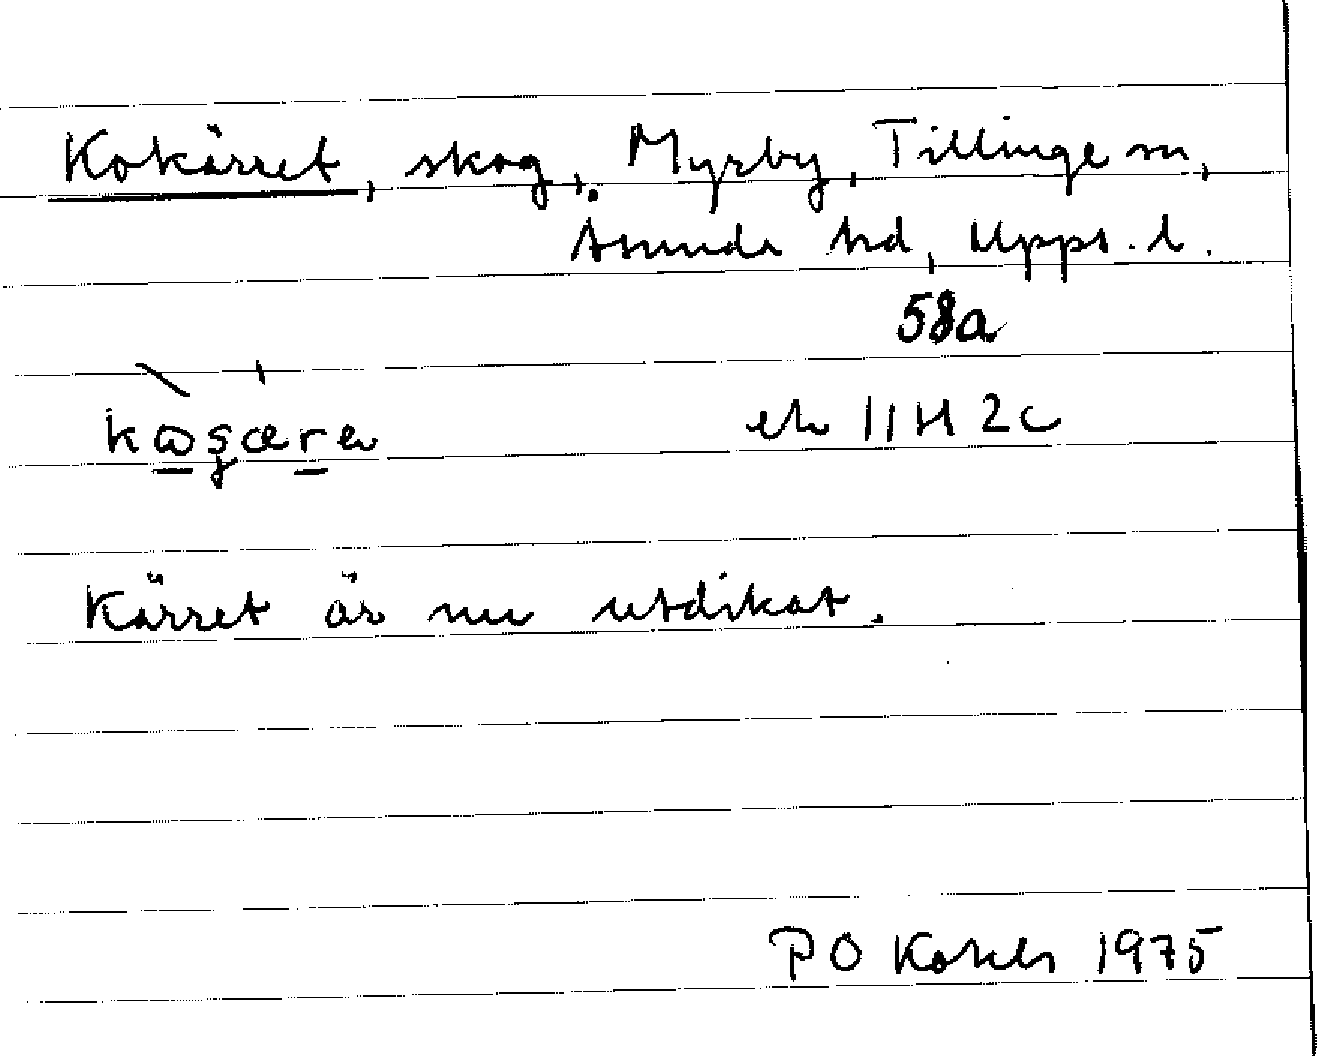 Kokärret, skog, Myrby, Tillinge sn,
Åsunda hd, Upps. l.
58a
ek 11H 2c
Kärret är nu utdikat.
PO 1975